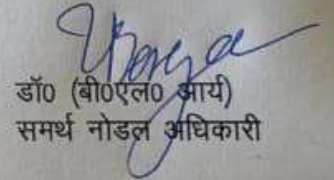 डॉ0 (बी0एल0 आर्य)
समर्थ नोडल अधिकारी